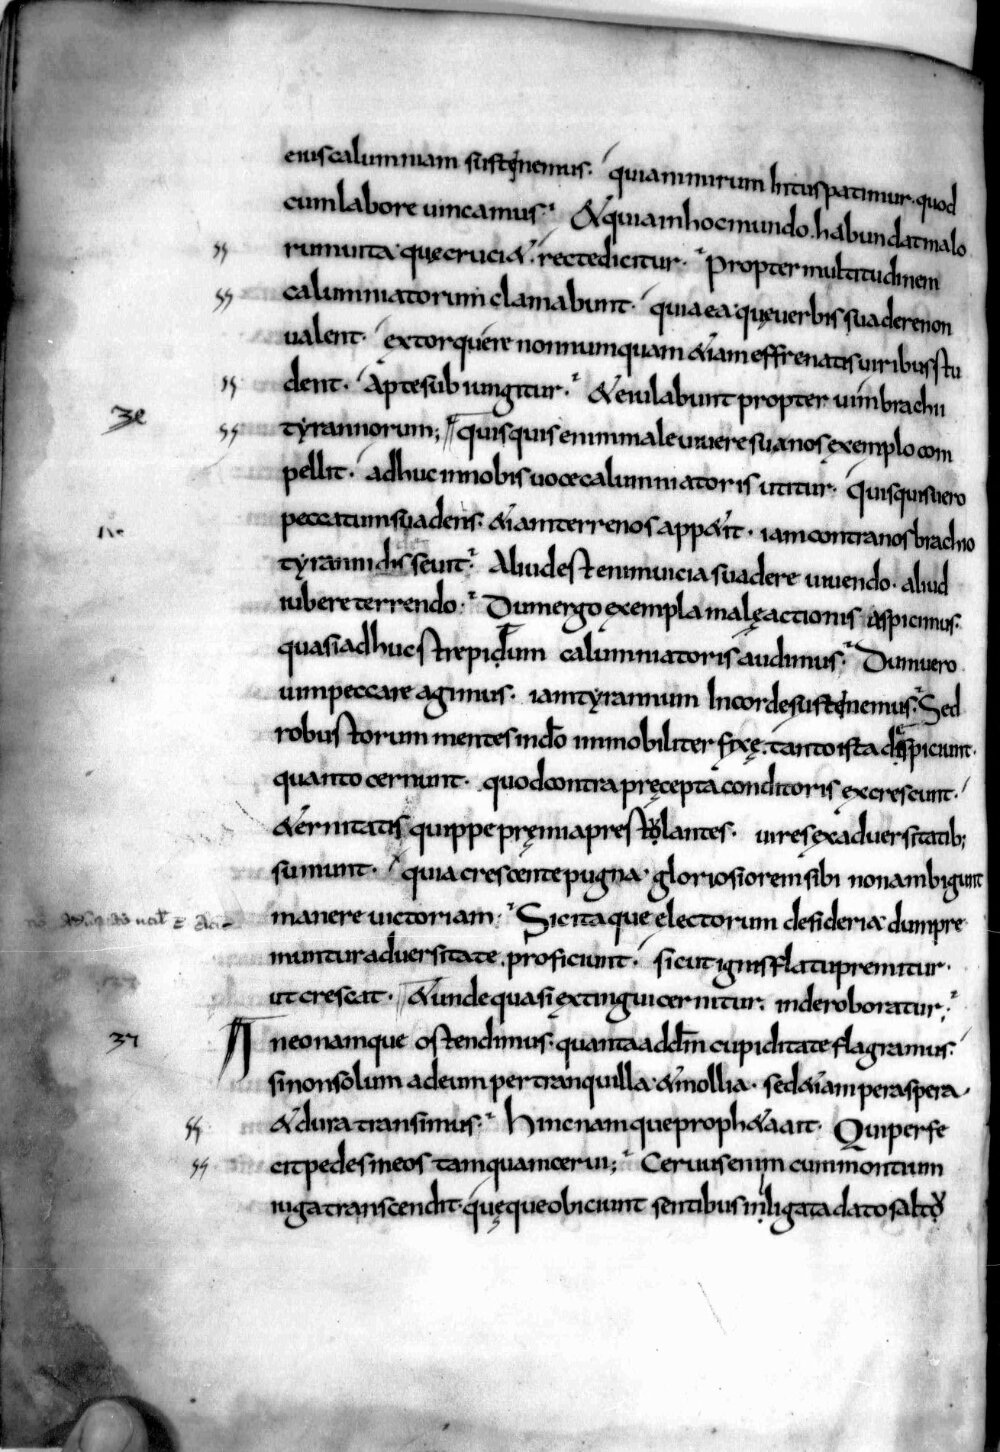 eius calumniam sustinemus. quia nimirum intus patimur. quod
cum labore uincamus. & quia in hoc mundo. habundat malo
rum uita quę cruci&. recte dicitur. Propter multitudinem
calumniatorum clamabunt. quia ea quę uerbis suadere non
ualent. extorquere nonnumquam &iam effrenatis uiribus stu
dent. Apte subiungitur. & eiulabunt propter uim brachii
tyrannorum; Quisquis enim male uiuere suanos exemplo com
pellit. adhuc in nobis uoce calumniatoris utitur. Quisquis uero
peccatum suadens. &iam terrenos app&it. iam contra nos brachio
tyrannidis seuit. Aliud est enim uicia suadere uiuendo. aliud
iubere terrendo. Dum ergo exempla malę actionis aspicimus.
quasi adhuc strepitum calumniatoris audimus. Dum uero
uim peccare agimus. iam tyrannum in corde sustinemus. Sed
robustorum mentes in dō immobiliter fixę. tanto ista despiciunt.
quanto cernunt. quod contra pręcepta conditoris excrescunt.
&ernitatis quippe pręmia prestolantes. uires ex aduersitatib;
sumunt. quia crescente pugna. gloriosiorem sibi non ambigunt
manere uictoriam. Sic itaque electorum desideria dum pre
muntur aduersitate. proficiunt. sicut ignis flatu premitur.
ut crescat. & unde quasi extingui cernitur. inde roboratur;
37 In eo namque ostendimus. quanta ad dm̄ cupiditate flagramus.
si non solum ad eum per tranquilla & mollia. sed &iam per aspera
& dura transimus. Hinc namque proph&a ait. Qui perfe
cit pedes meos tamquam cerui; Ceruus enim cum montium
iuga transcendit. quęque obiciunt sentibus inligata dato saltu